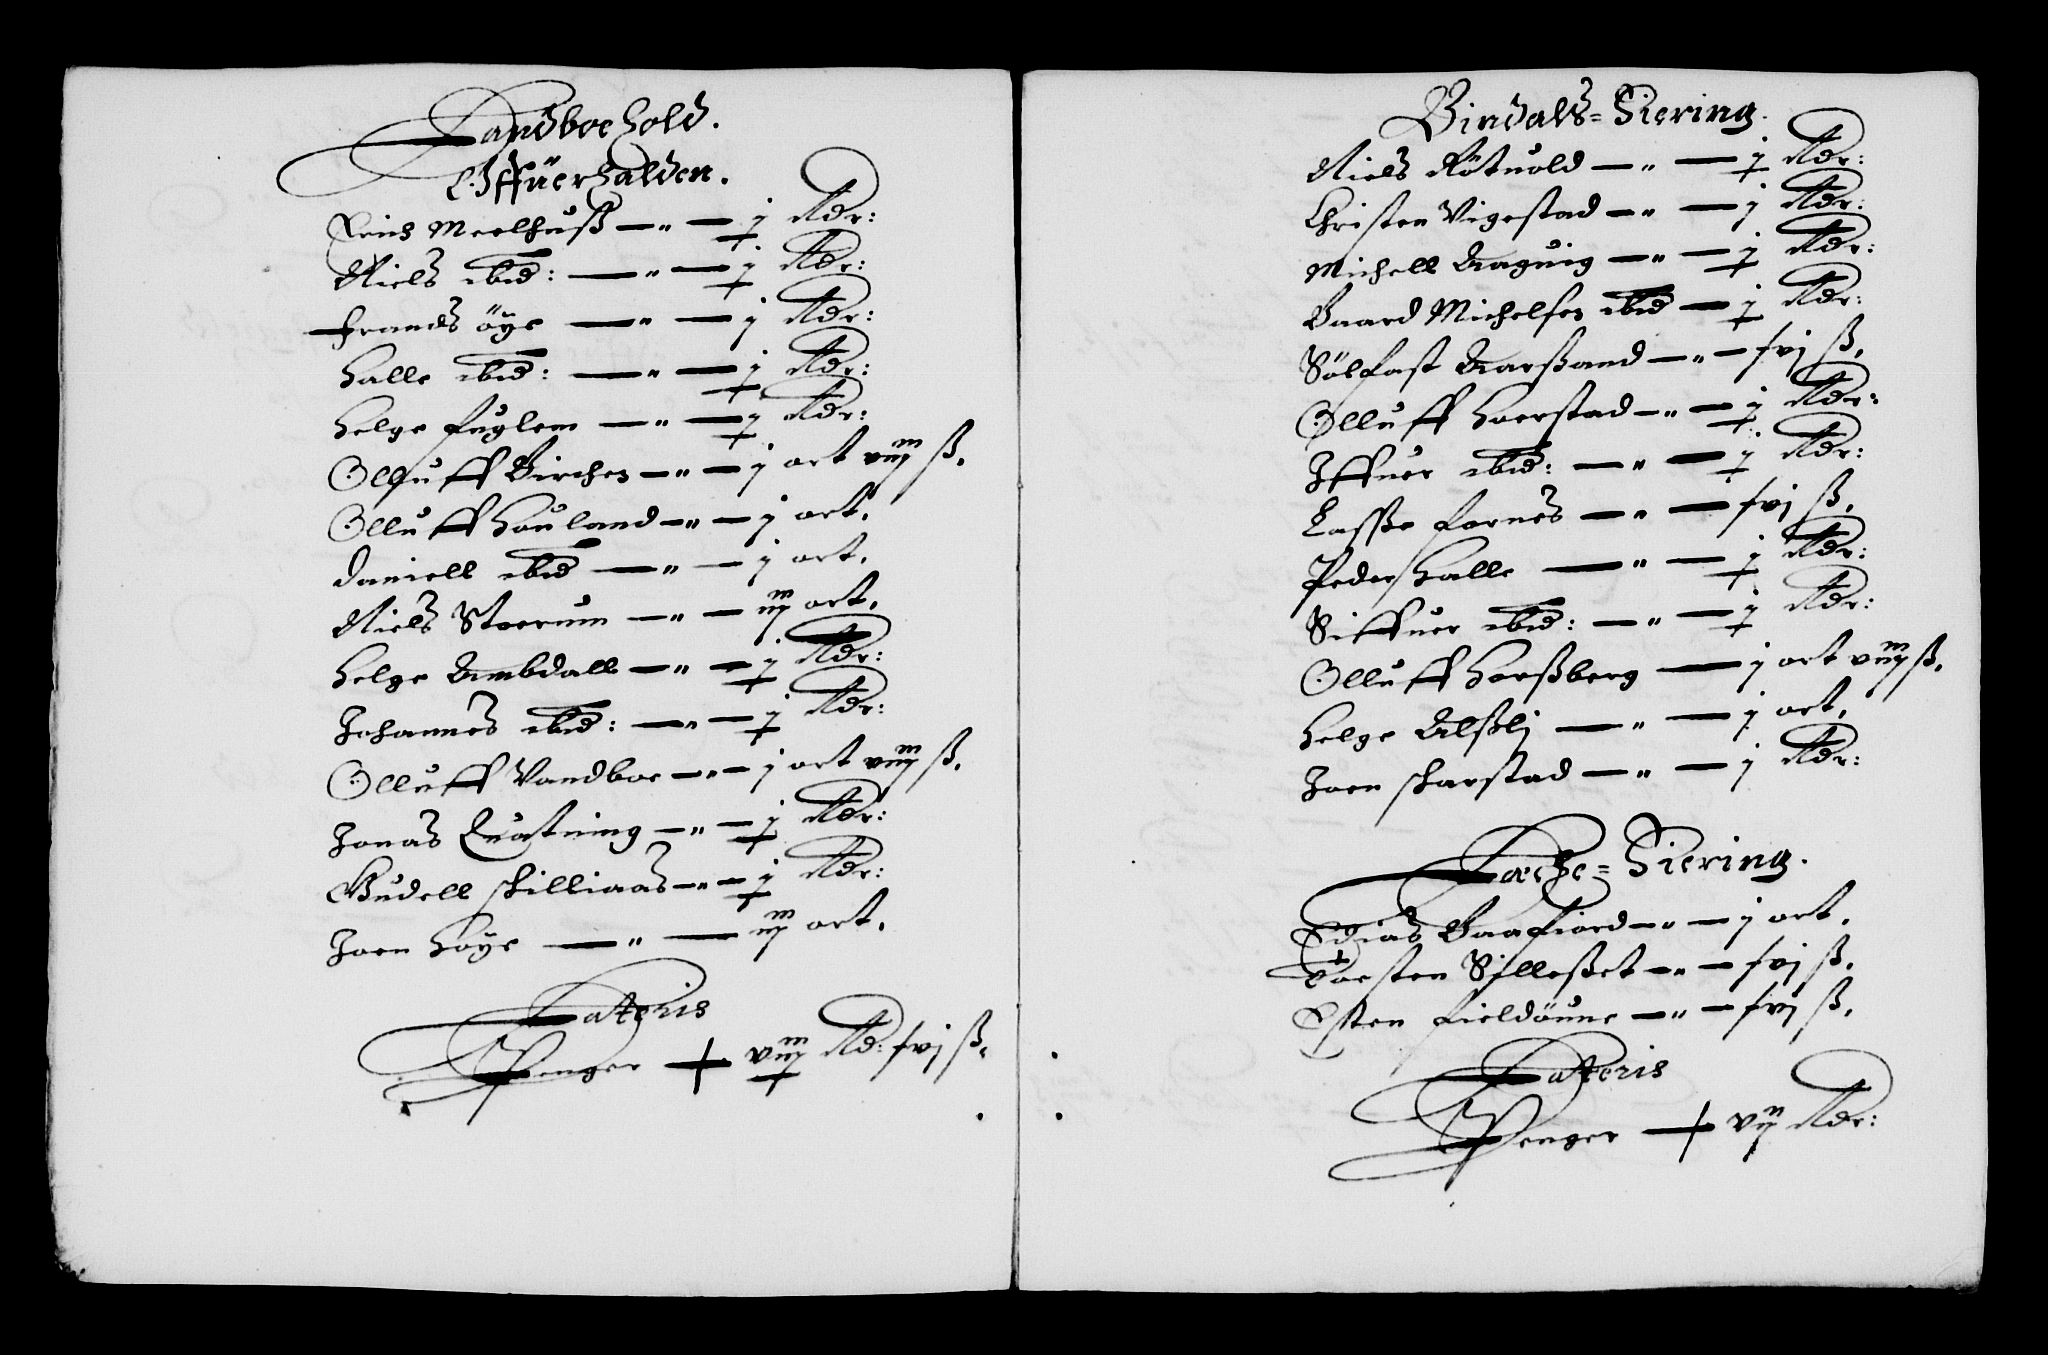 Landboehold.
Offuerhalden.
Lars Meelhuß — " — j Rdr:
Niels ibid: — " — j Rdr:
Frands öÿe — " — j Rdr:
Halle ibid: — " — j Rdr:
Helge fuglem — " — j Rdr:
Olluff Birchen — " — j ort viij ß.
Olluff Houland — " — j ort.
Daniell ibid — " — j ort.
Niels Stoerum — " — iij ort.
Helge Ambdall — " — j Rdr:
Johannes ibid: — " — j Rdr:
Olluff Vandboe — " — j ort viij ß.
Jonas Quatning — " — j Rdr:
Gudell skilliaas — " — j Rdr:
Joen Höÿe — " — iij ort.
Lateris
Penger + viij Rd: xvj ß.
Bindals=Fiering.
Niels Rötuold — " — j Rdr:
Christen Vigestad — " — j Rdr:
Michell Aaguig — " — j Rdr:
Baard Michelsen ibid — j Rdr:
Sölfast Aarßand — " — xvj ß.
Olluff Horstad — " — j Rdr:
Iffuer ibid: — " — j Rdr:
Lasse fornes — " — xvj ß.
Peder Halle — " — j Rdr:
Siffuer ibid: — " — j Rdr:
Olluff Horßberg — j ort viij ß.
Helge Alßlj — " — j ort.
Joen skarstad — " — j Rdr:
Fiering.
Baafiord — " — j ort.
Torsten Silleßet — " — xvj ß.
Esten fieldöune — " — xvj ß.
Lateris
Penger + vij Rdr: